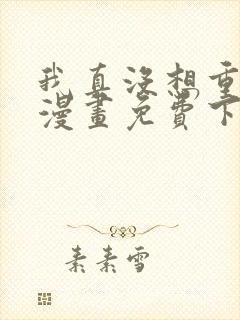 我真没想重
漫畫免費下
素素雪